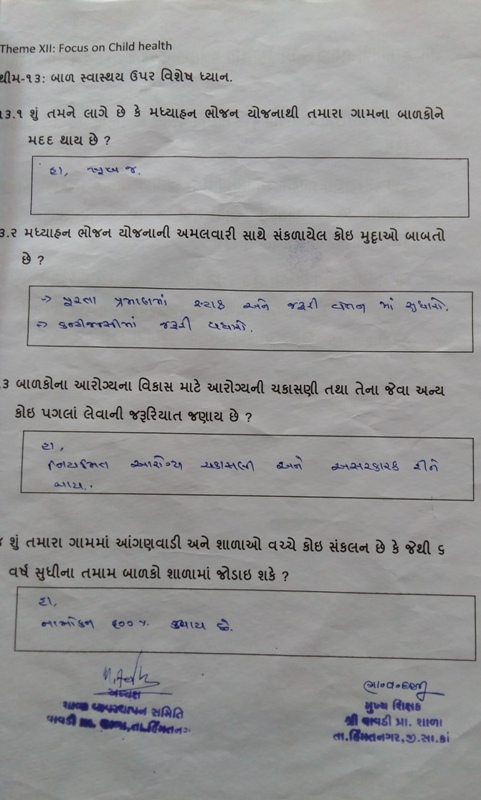 Theme XII: Focus on Child health
થીમ-૧૩: બાળ સ્વાસ્થય ઉપર વિશેષ ધ્યાન.
૧૩.૧ શું તમને લાગે છે કે મધ્યાહન ભોજન યોજનાથી તમારા ગામના બાળકોને
મદદ થાય છે ?
હા, ખૂબ જ.
૩.૨ મધ્યાહન ભોજન યોજનાની અમલવારી સાથે સંકળાયેલ કોઇ મુદ્દાઓ બાબતો
છે ?
→ પુરતા પ્રમાણમાં સ્ટાફ અને જરૂરી વેતન માં સુધારો.
→ કન્ટીજન્સીમાં જરૂરી વધારો.
૩ બાળકોના આરોગ્યના વિકાસ માટે આરોગ્યની ચકાસણી તથા તેના જેવા અન્ય
કોઇ પગલાં લેવાની જરૂરિયાત જણાય છે ?
હા,
નિયમિત આરોગ્ય ચકાસણી અને અસરકારક રીતે
થાય.
શું તમારા ગામમાં આંગણવાડી અને શાળાઓ વચ્ચે કોઇ સંકલન છે કે જેથી ૬
વર્ષ સુધીના તમામ બાળકો શાળામાં જોડાઇ શકે ?
હા,
નામાંકન ૧૦૦ %. થાય છે.
અધ્યક્ષ
શાળા વ્યવસ્થાપન સમિતિ
વાવડી પ્રા. શાળા,તા.હિંમતનગર
મુખ્ય શિક્ષક
શ્રી વાવડી પ્રા. શાળા
તા.હિંમતનગર,જી.સા.કાં